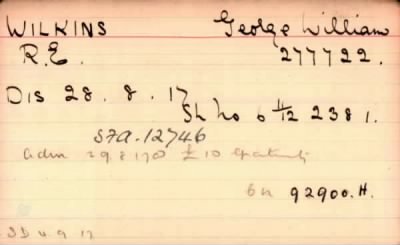 WILKINS George William
R.E. 277722.
Dis 28.8.17
Sh No 6 4/12 2381.
SZA.12746
adm 29.8.170 £10
6n 92900.H.
SD 4 9 17